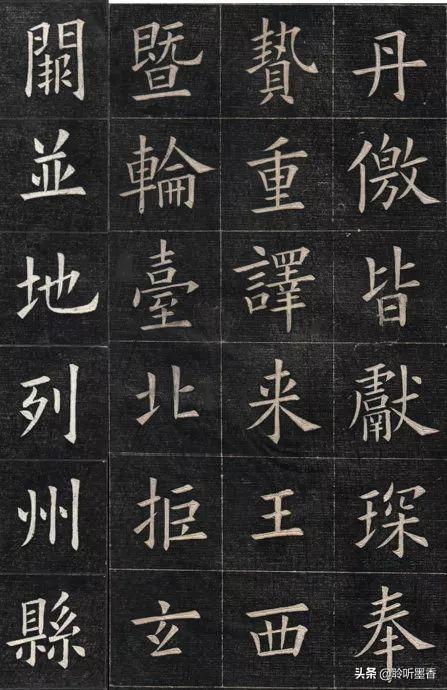 丹儌皆獻琛奉
贄重譯来王西
暨輪臺北拒玄
闕並地列州縣
头条 @聆听墨香